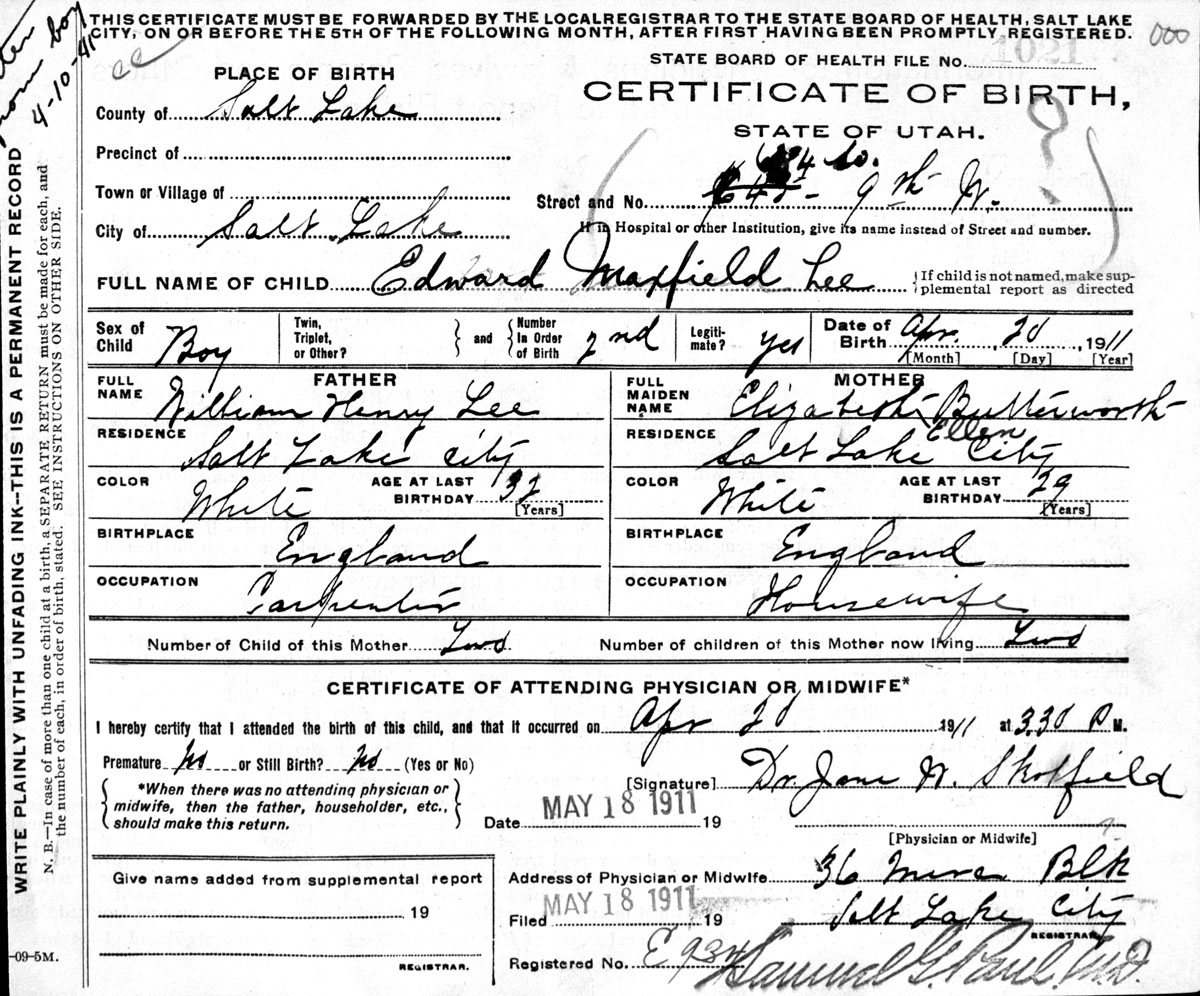 THIS CERTIFICATE MUST BE FORWARDED BY THE LOCALREGISTRAR TO THE STATE BOARD OF HEALTH, SALT LAKE
CITY, ON OR BEFORE THE 5TH OF THE FOLLOWING MONTH, AFTER FIRST HAVING BEEN PROMPTLY REGISTERED.
000
boy
4-10-41
STATE BOARD OF HEALTH FILE No. 1021
PLACE OF BIRTH
CERTIFICATE OF BIRTH,
STATE OF UTAH.
County of Salt Lake
Precinct of
Town or Village of
Street and No. 9th W.
City of Salt Lake
If in Hospital or other Institution, give its name instead of Street and number.
FULL NAME OF CHILD Edward Maxfield Lee
{If child is not named, make sup-
plemental report as directed
Sex of Child Boy
Twin, Triplet, or Other?
and
Number In Order of Birth 2nd
Legiti-mate? yes
Date of Birth Apr. 20, 1911
[Month] [Day] [Year]
FATHER
FULL NAME William Henry Lee
RESIDENCE Salt Lake City
COLOR White
AGE AT LAST BIRTHDAY 32
[Years]
BIRTHPLACE England
OCCUPATION Carpenter
MOTHER
FULL MAIDEN NAME Elizabeth Butterworth
Ellen
RESIDENCE Salt Lake City
COLOR White
AGE AT LAST BIRTHDAY 29
[Years]
BIRTHPLACE England
OCCUPATION Housewife
Number of Child of this Mother Two
Number of children of this Mother now living Two
CERTIFICATE OF ATTENDING PHYSICIAN OR MIDWIFE*
I hereby certify that I attended the birth of this child, and that it occurred on Apr 20 1911 at 3.30 P M.
Premature No or Still Birth? No (Yes or No)
*When there was no attending physician or
midwife, then the father, householder, etc.,
should make this return.
[Signature] Dr. Jane W. Skolfield
Date MAY 18 1911 19
[Physician or Midwife]
Address of Physician or Midwife 36 Blk
Salt Lake City
Filed MAY 18 1911 19
REGISTRAR
Registered No. E 934
Samuel G. Paul, M.D.
Give name added from supplemental report
19
REGISTRAR.
-09-5M.
WRITE PLAINLY WITH UNFADING INK--THIS IS A PERMANENT RECORD
N. B.—In case of more than one child at a birth, a SEPARATE RETURN must be made for each, and
the number of each, in order of birth, stated. SEE INSTRUCTIONS ON OTHER SIDE.